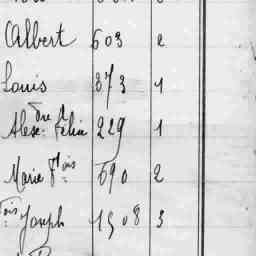 Albert 603 2
Louis 873 1
Alex.dre Félix 229 1
Marie F.ois 690 2
ois Joseph 1508 3